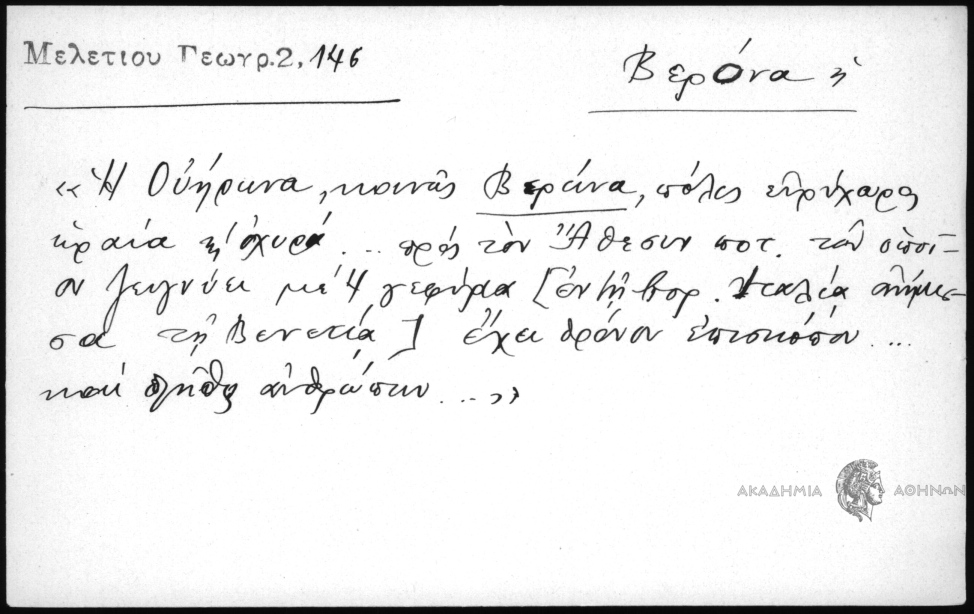 Μελετιου Γεωγρ.2, 146
Βερόνα ἡ
«Ἡ Οὐήρωνα, κοινῶς Βερώνα, πόλις εὐρύχωρος
ὡραία κ' ὀχυρά ... πρός τὸν Ἄθεσιν ποτ. τὸν ὁποῖ-
ον ζευγνύει μέ 4 γεφύρια [ἐν τῇ βορ. Ἰταλία
σα τῇ Βενετία] ἔχει θρόνον ἐπισκόπου ...
καί πλῆθος ἀνθρώπων ...»
ΑΚΑΔΗΜΙΑ ΑΘΗΝΩΝ